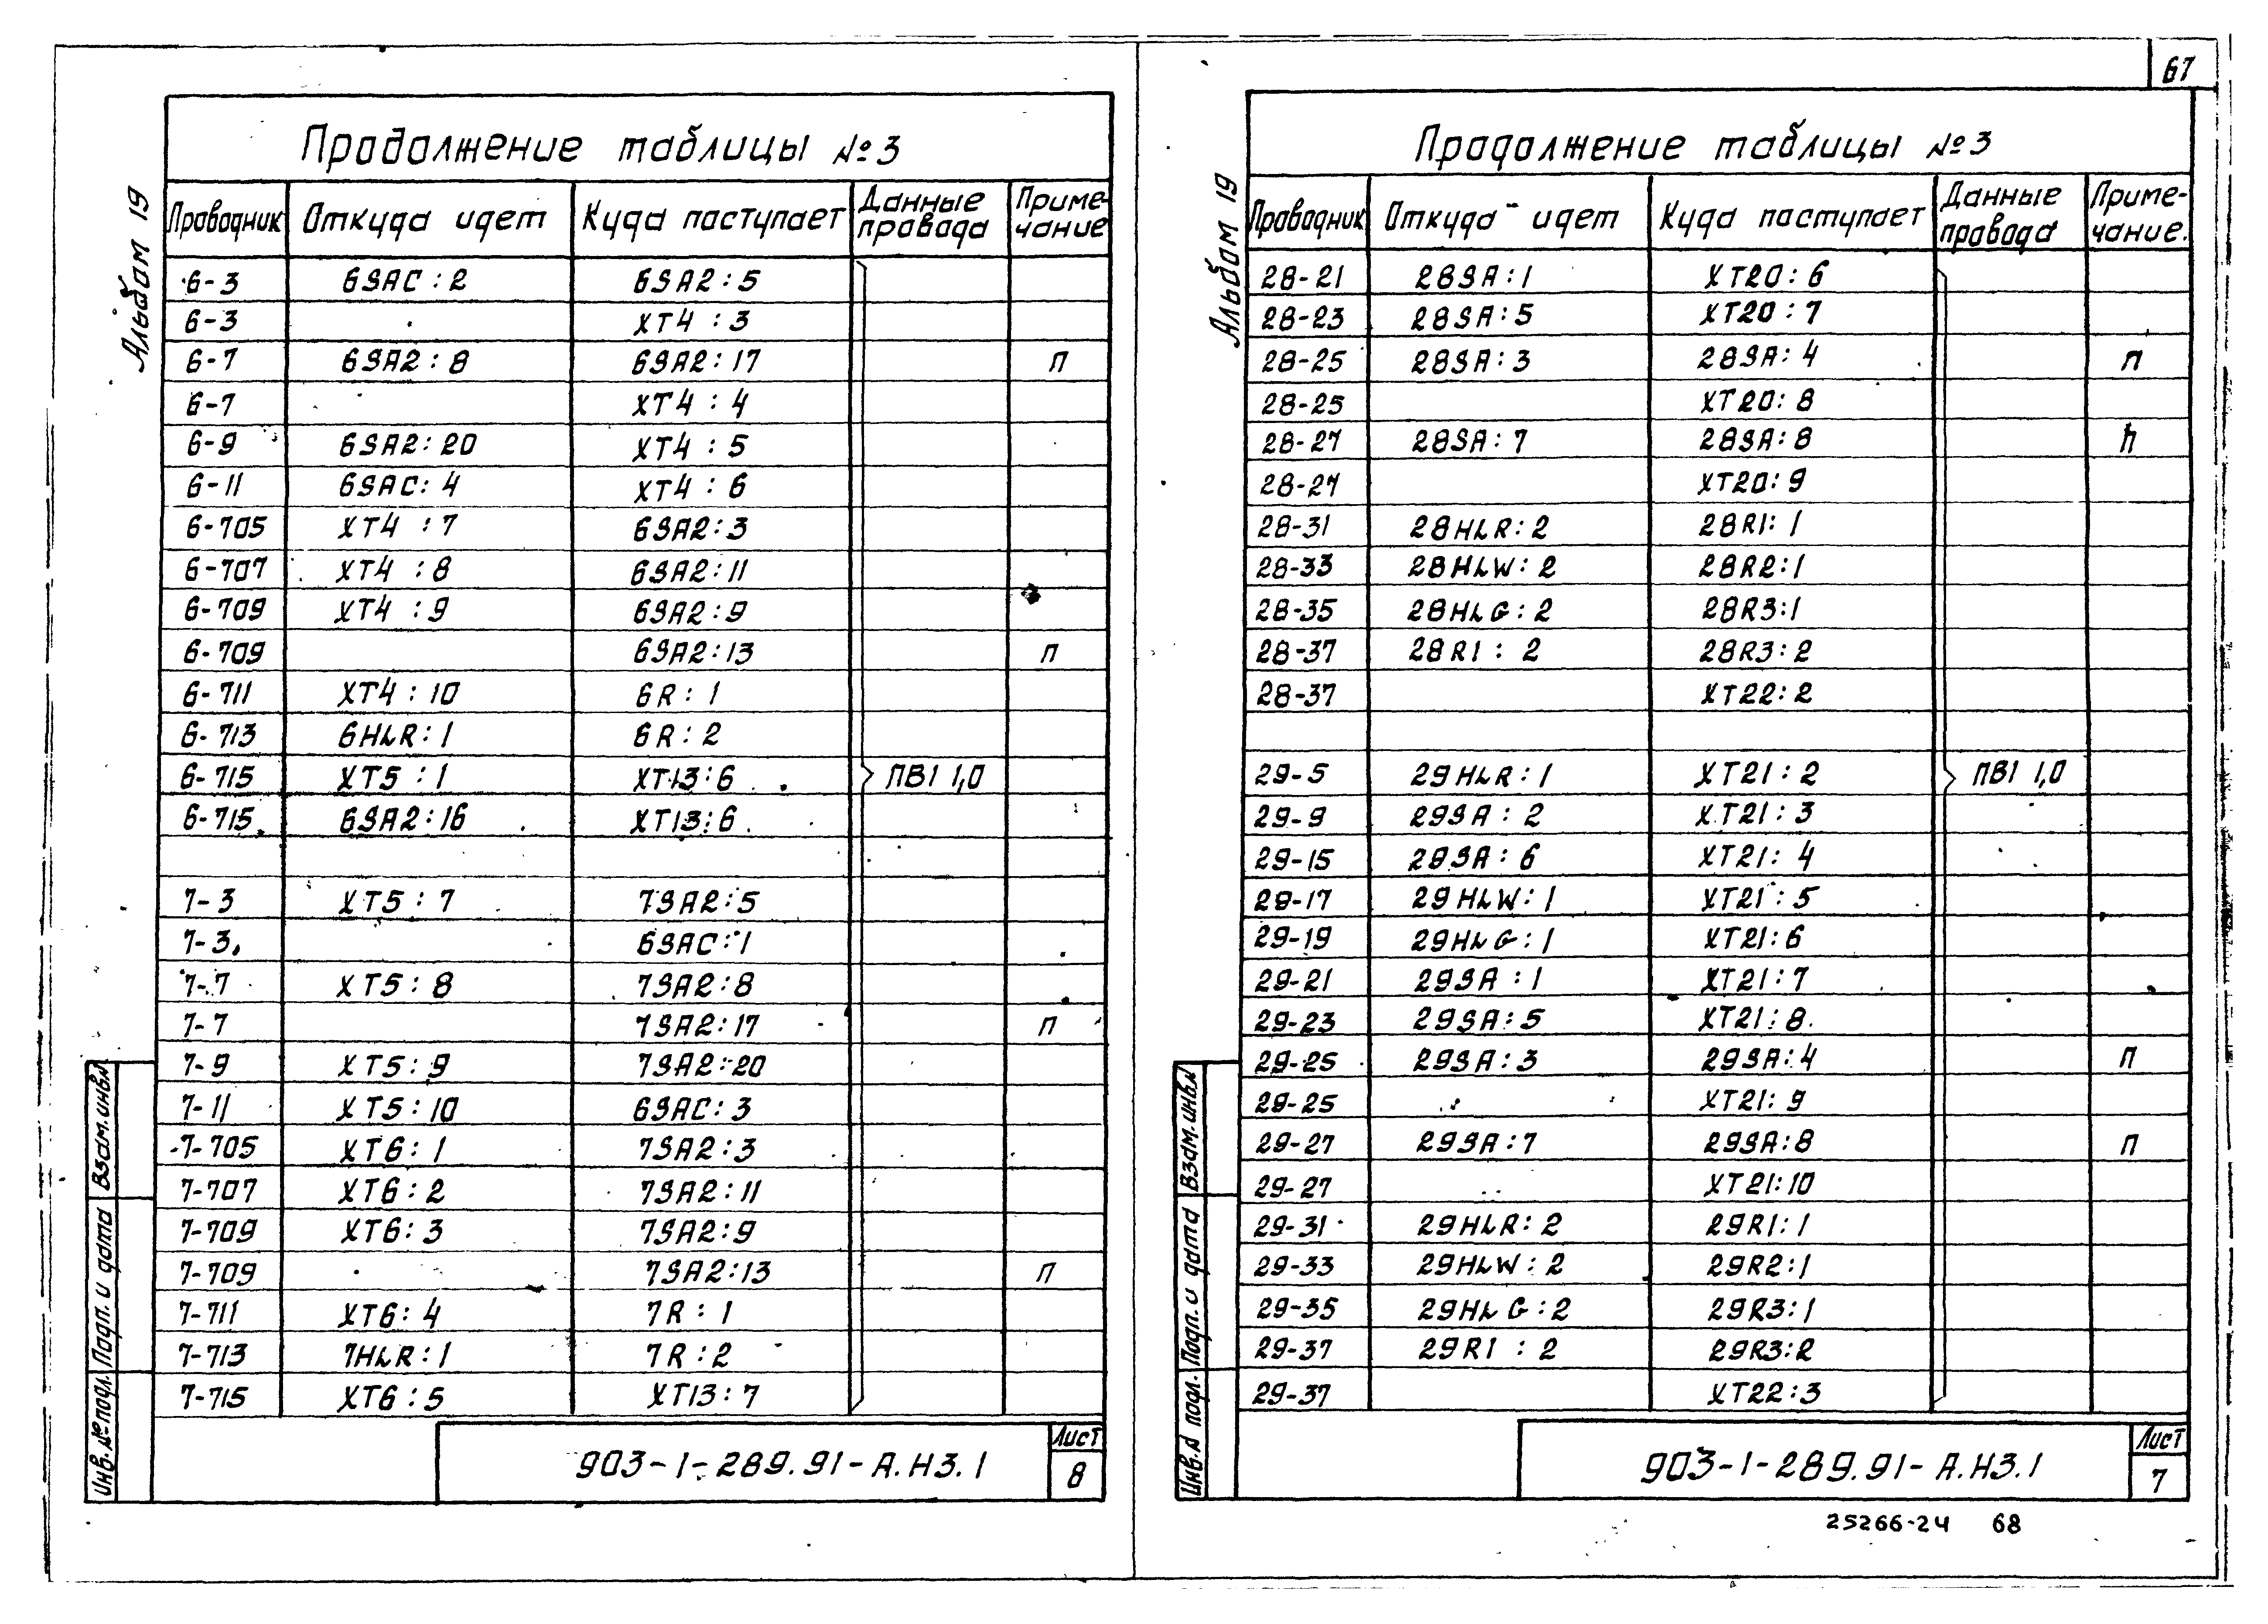 67
Альбом 19
Продолжение таблицы №3
Проводник Откуда идет Куда поступает Данные провода Примечание
6-3 6SAC:2 6SA2:5
6-3 XT4:3
6-7 6SA2:8 6SA2:17 П
6-7 XT4:4
6-9 6SA2:20 XT4:5
6-11 6SAC:4 XT4:6
6-705 XT4:7 6SA2:3
6-707 XT4:8 6SA2:11
6-709 XT4:9 6SA2:9
6-709 6SA2:13 П
6-711 XT4:10 6R:1
6-713 6HLR:1 6R:2
6-715 XT5:1 XT13:6 ПВ1 1,0
6-715 6SA2:16 XT13:6
7-3 XT5:7 7SA2:5
7-3 6SAC:1
7-7 XT5:8 7SA2:8
7-7 7SA2:17 П
7-9 XT5:9 7SA2:20
7-11 XT5:10 6SAC:3
7-705 XT6:1 7SA2:3
7-707 XT6:2 7SA2:11
7-709 XT6:3 7SA2:9
7-709 7SA2:13 П
7-711 XT6:4 7R:1
7-713 7HLR:1 7R:2
7-715 XT6:5 XT13:7
Инв. № подл. Подп. и дата Взам. инв.№
903-1-289.91-А.НЗ.1
Лист
8
Альбом 19
Продолжение таблицы №3
Проводник Откуда идет Куда поступает Данные провода Примечание.
28-21 28SA:1 XT20:6
28-23 28SA:5 XT20:7
28-25 28SA:3 28SA:4 П
28-25 XT20:8
28-27 28SA:7 28SA:8 П
28-27 XT20:9
28-31 28HLR:2 28R1:1
28-33 28HLW:2 28R2:1
28-35 28HLG:2 28R3:1
28-37 28R1:2 28R3:2
28-37 XT22:2
29-5 29HLR:1 XT21:2 ПВ1 1,0
29-9 29SA:2 XT21:3
29-15 29SA:6 XT21:4
29-17 29HLW:1 XT21:5
29-19 29HLG:1 XT21:6
29-21 29SA:1 XT21:7
29-23 29SA:5 XT21:8
29-25 29SA:3 29SA:4 П
29-25 XT21:9
29-27 29SA:7 29SA:8 П
29-27 XT21:10
29-31 29HLR:2 29R1:1
29-33 29HLW:2 29R2:1
29-35 29HLG:2 29R3:1
29-37 29R1:2 29R3:2
29-37 XT22:3
Инв.№ подл. Подп. и дата Взам. инв.№
903-1-289.91-А.НЗ.1
Лист
7
25266-24 68